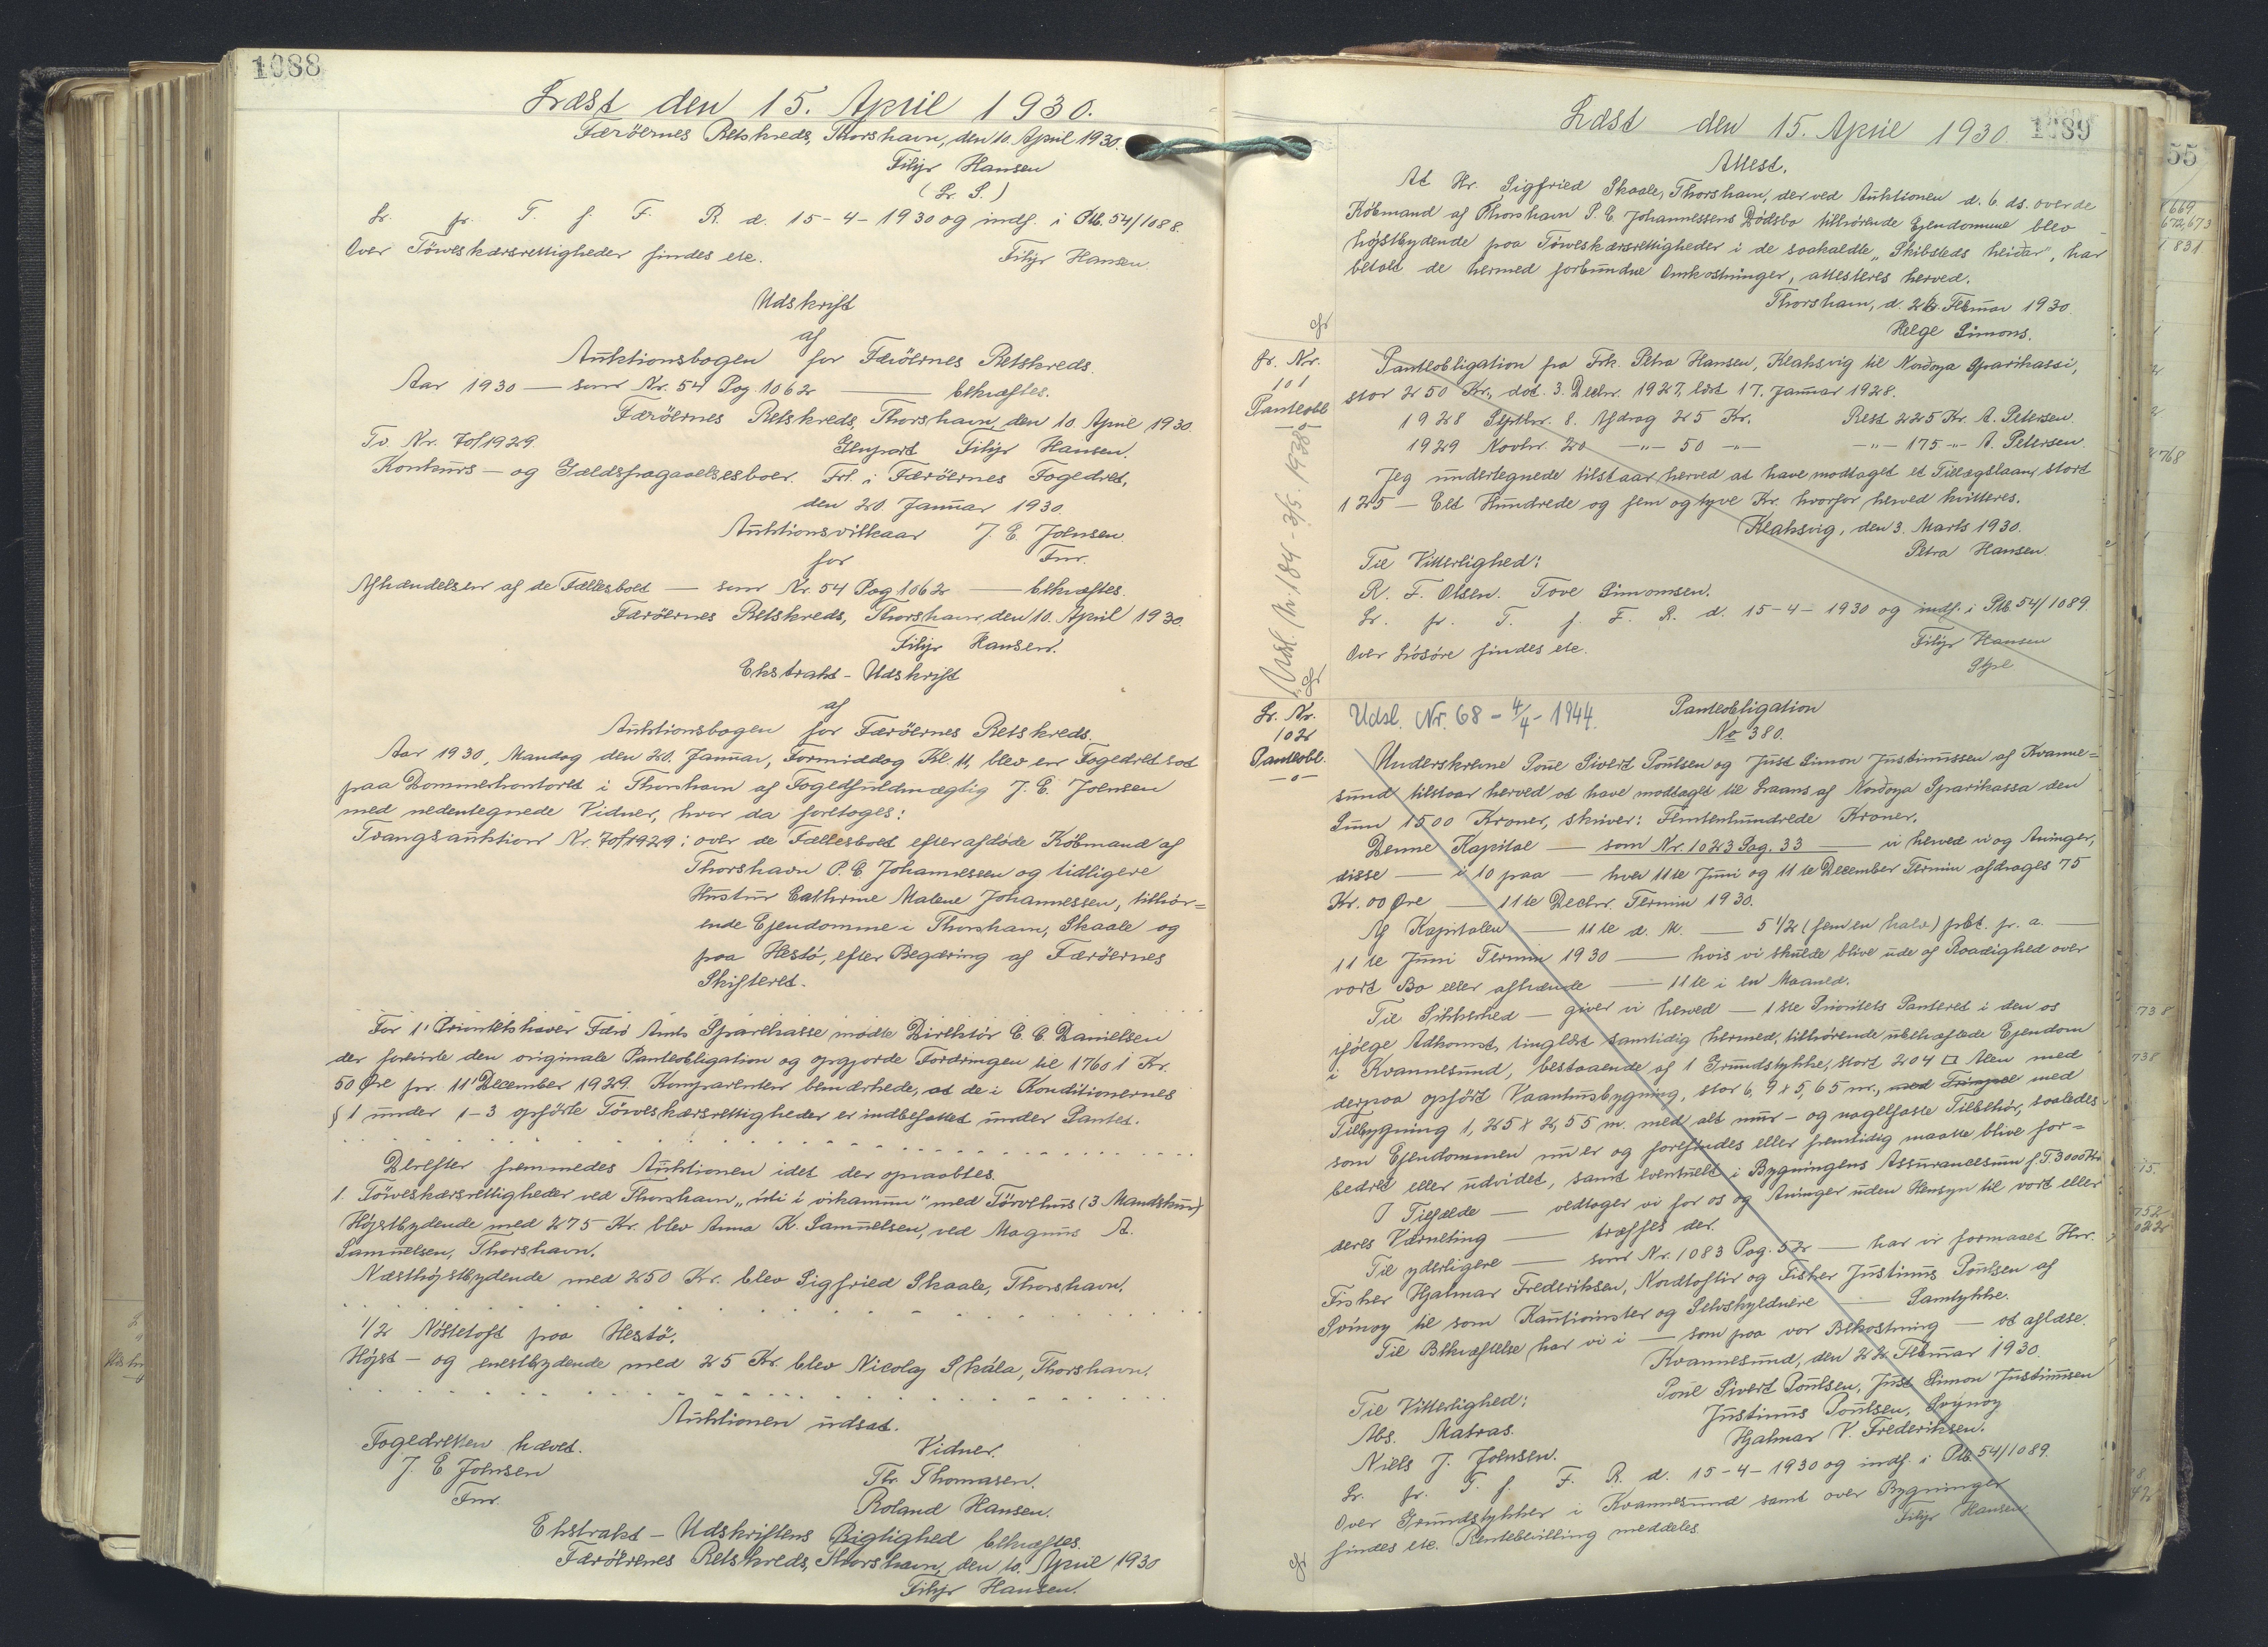 1088
Læst den 15. April 1930.
Færöernes Retskreds, Thorshavn, den 10. April 1930.
Filip Hansen
(L. S.)
Lr. fr. T. f. F. R. d. 15-4-1930 og indf. i Ptb. 54/1088.
Over Törveskærsrettigheder findes ete.
Filip Hansen
Udskrift
af
Auktionsbogen for Færöernes Retskreds.
Aar 1930 — som Nr. 54 Pag. 1062 — bekræftes.
Færöernes Retskreds, Thorshavn, den 10. April 1930
Tv. Nr. 70/1929. Genpart Filip Hansen.
Konkurs- og Gældsfragaaelsesboer. Frl. i Færöernes Fogedret,
den 20. Januar 1930.
Auktionsvilkaar J. E. Joensen
for Fm.
Afhændelsen af de Fællesboet — som Nr. 54 Pag. 1062 — bekræftes.
Færöernes Retskreds, Thorshavn, den 10. April 1930.
Filip Hansen.
Ekstrakt-Udskrift
af
Auktionsbogen for Færöernes Retskreds.
Aar 1930, Mandag den 20. Januar, Formiddag Kl. 11, blev en Fogedret sat
paa Dommerkontoret i Thorshavn af Fogedfuldmægtig J. E. Joensen
med nedentegnede Vidner, hvor da foretoges:
Tvangsauktion Nr. 70/1929: over de Fællesboet efter afdöde Köbmand af
Thorshavn P. E. Johannessen og tidligere
Hustru Cathrine Malene Johannessen, tilhör=
ende Ejendomme i Thorshavn, Skaale og
paa Hestö, efter Begæring af Færöernes
Skifteret.
For 1' Prioritetshaver Færö Amts Sparekasse mødte Direktör C. C. Danielsen
der foreviste den originale Panteobligation og opgjorde Fordringen til 17601 Kr.
50 Øre pr. 11' December 1929. Komparenten bemærkede, at de i Konditionernes
§ 1 under 1-3 opförte Törveskærsrettigheder er indbefattet under Pantet.
Derefter fremmedes Auktionen idet der opraabtes.
1. Törveskærsrettigheder ved Thorshavn, „úti í vikamum" med Törvehus (3 Mandskur)
Højstbydende med 275 Kr. blev Anna K. Samuelsen, ved Magnus A.
Samuelsen, Thorshavn.
Næsthøjstbydende med 250 Kr. blev Sigfried Skaale, Thorshavn.
1/2 Nöstetoft paa Hestö.
Højst- og enestbydende med 25 Kr. blev Nicolaj Skála, Thorshavn.
Auktionen udsat.
Fogedretten hævet. Vidner.
J. E. Joensen Th. Thomasen.
Fm. Roland Hansen.
Ekstrakt-Udskriftens Rigtighed bekræftes.
Færöernes Retskreds, Thorshavn, den 10. April 1930
Filip Hansen.
Læst den 15. April 1930. 1089
Attest.
At Hr. Sigfried Skaale, Thorshavn, der ved Auktionen d. 6. ds. over de
Köbmand af Thorshavn P. E. Johannessens Dödsbo tilhørende Ejendomme blev
højstbydende paa Törveskærsrettigheder i de saakaldte „Skibsteds heidar", har
betalt de hermed forbundne Omkostninger, attesteres herved.
Thorshavn, d. 26. Februar 1930.
Helge Simons.
Lr. Nr.
101
Panteobl.
Udsl. Nr. 184-3/5. 1938
Panteobligation fra Frk. Petra Hansen, Klaksvig til Nordoya Sparikassi,
stor 250 Kr., dat. 3. Decbr. 1927, læst 17. Januar 1928.
1928 Septbr. 8. Afdrag 25 Kr. Rest 225 Kr. A. Petersen.
1929 Novbr. 20 -"- 50 -"- -"- 175 -"- A. Petersen.
Jeg undertegnede tilstaar herved at have modtaget et Tillægslaan, stort
125 — Eet Hundrede og fem og tyve Kr. hvorfor herved kvitteres.
Klaksvig, den 3. Marts 1930.
Petra Hansen.
Til Vitterlighed:
R. F. Olsen. Tove Simonsen.
Lr. fr. T. f. F. R. d. 15-4-1930 og indf. i Ptb. 54/1089.
Over Lösöre findes ete. Filip Hansen
Lr. Nr.
102
Panteobl.
Udsl. Nr. 68 - 4/4 - 1944.
Panteobligation
No 380.
Underskrevne Poul Sivert Poulsen og Just Simon Justinussen af Kvanne=
sund, tilstaar herved at have modtaget til Laans af Nordoya Sparikassa den
Sum 1500 Kroner, skriver: Femtenhundrede Kroner.
Denne Kapital — som Nr. 1023 Pag. 33 — vi herved vi og Arvinger,
disse — i 10 paa — hver 11te Juni og 11te December Termin afdrages 75
Kr. 00 Øre — 11te Decbr. Termin 1930.
Af Kapitalen — 11te d. M. — 5 1/2 (fem en halv) pCt. pr. a. —
11te Juni Termin 1930 — hvis vi skulde blive ude af Raadighed over
vort Bo eller afhænde — 11te i en Maaned.
Til Sikkerhed — giver vi herved — 1ste Prioritets Panteret i den os
ifölge Adkomst, tinglæst samtidig hermed, tilhörende ubehæftede Ejendom
i Kvannesund, bestaaende af 1 Grundstykke, stort 204 □ Alen med
derpaa opfört Vaanhusbygning, stor 6,9 x 5,65 m., med Trappe med
Tilbygning 1,25 x 2,55 m. med alt mur- og nagelfaste Tilbehör, saaledes
som Ejendommen nu er og forefindes eller fremtidig maatte blive for=
bedret eller udvidet, samt eventuelt i Bygningens Assurancesum f. T. 3000 Kr.
I Tilfælde — vedtager vi for os og Arvinger uden Hensyn til vort eller
deres Værneting — træffes der.
Til yderligere — som Nr. 1083 Pag. 52 — har vi formaaet Hrr.
Fisker Hjalmar Frederiksen, Nordtoftir og Fisker Justinus Poulsen af
Svinoy til som Kautionister og Selvskyldnere — Samtykke.
Til Bekræftelse har vi i — som paa vor Bekostning — at aflæse.
Kvannesund, den 22. Februar 1930.
Poul Sivert Poulsen, Just Simon Justinussen
Til Vitterlighed: Justinus Poulsen, Svinoy
Abs. Matras. Hjalmar V. Frederiksen.
Niels J. Joensen.
Lr. fr. T. f. F. R. d. 15-4-1930 og indf. i Ptb. 54/1089.
Over Grundstykker i Kvannesund samt over Bygninger
findes ete. Rentebevilling meddeles. Filip Hansen
55
669
672,673
831
768
738
738
15.
752
022